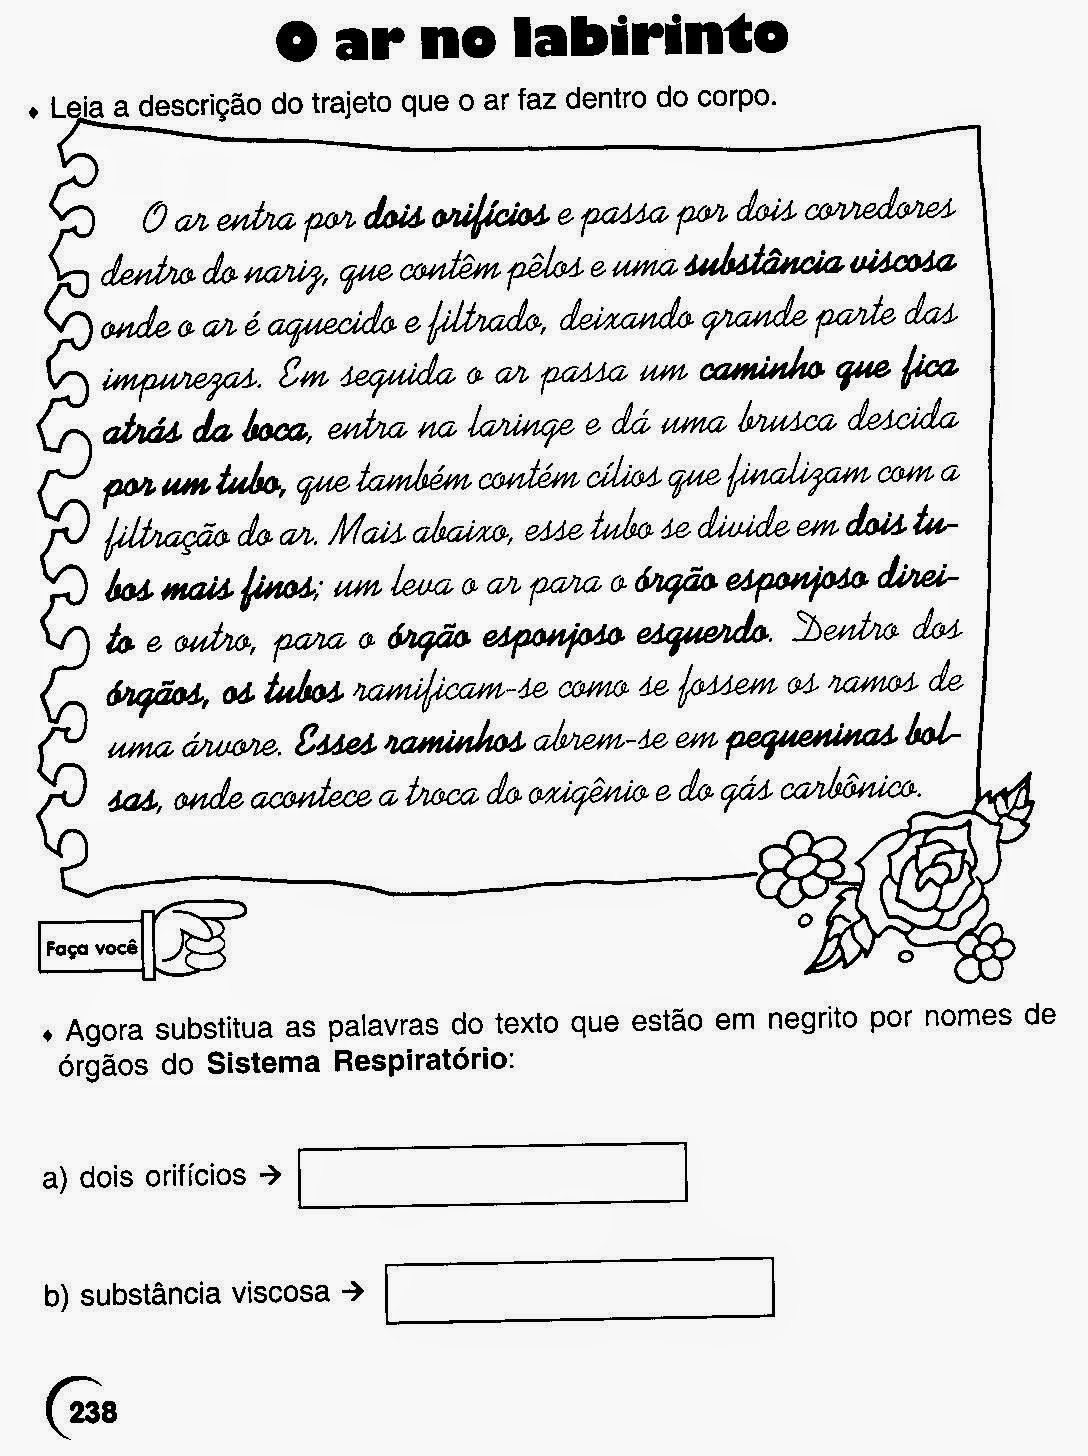 O ar no labirinto
♦ Leia a descrição do trajeto que o ar faz dentro do corpo.
O ar entra por dois orifícios e passa por dois corredores
dentro do nariz, que contêm pêlos e uma substância viscosa
onde o ar é aquecido e filtrado, deixando grande parte das
impurezas. Em seguida o ar passa um caminho que fica
atrás da boca, entra na laringe e dá uma brusca descida
por um tubo, que também contém cílios que finalizam com a
filtração do ar. Mais abaixo, esse tubo se divide em dois tu-
bos mais finos; um leva o ar para o órgão esponjoso direi-
to e outro, para o órgão esponjoso esquerdo. Dentro dos
órgãos, os tubos ramificam-se como se fossem os ramos de
uma árvore. Esses raminhos abrem-se em pequeninas bol-
sas, onde acontece a troca do oxigênio e do gás carbônico.
Faça você
♦ Agora substitua as palavras do texto que estão em negrito por nomes de
órgãos do Sistema Respiratório:
a) dois orifícios →
b) substância viscosa →
238